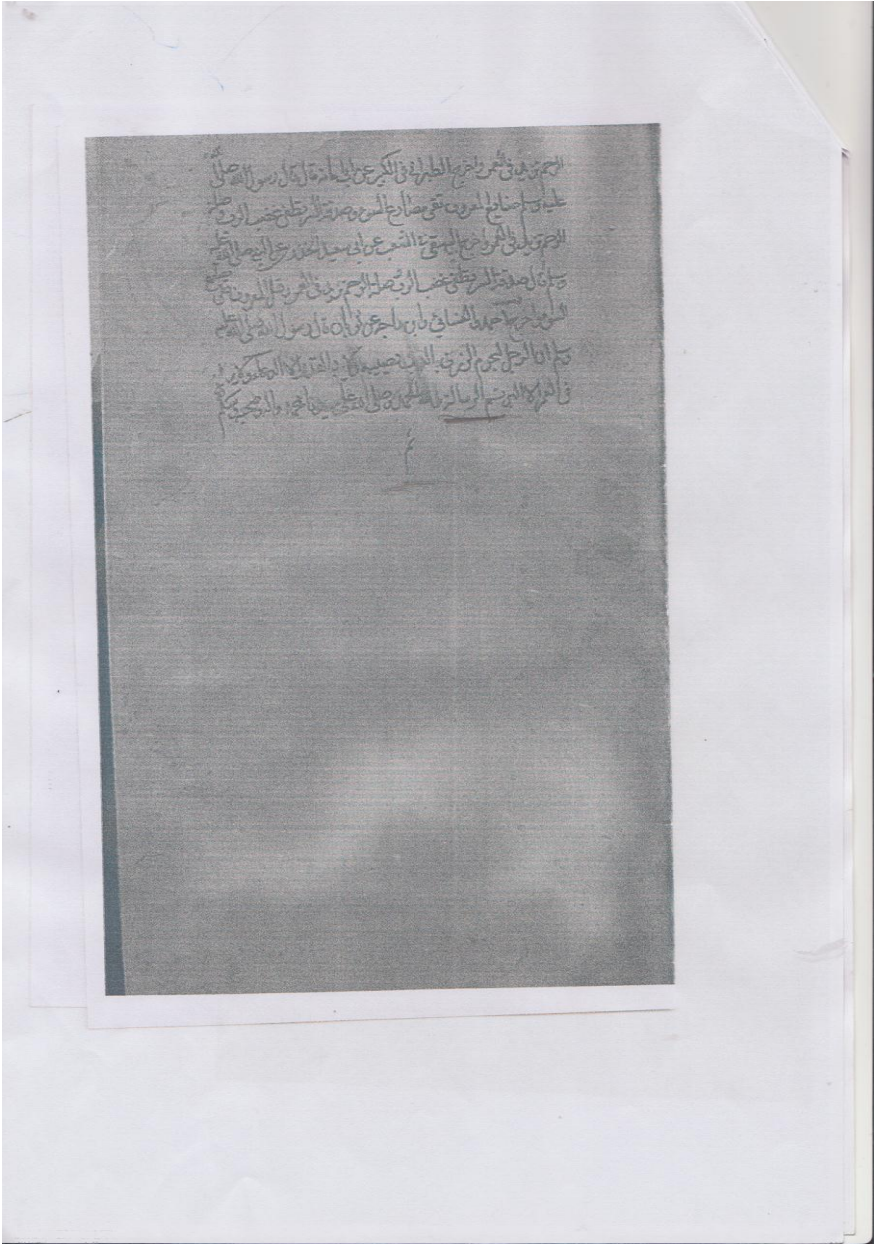 الرحم تزيد في العمر واخرج الطبراني في الكبير عن ابي امامة قال قال رسول الله صلى الله
عليه وسلم صنايع المعروف تقي مصارع السوء وصدقة السر تطفي غضب الرب وصلة
الرحم تزيد في العمر واخرج البيهقي في الشعب عن ابي سعيد الخدري عن النبي صلى الله عليه
وسلم قال صدقة السر تطفي غضب الرب وصلة الرحم تزيد في العمر وفعل المعروف يقي
السوء واخرج احمد والنسائي وابن ماجه عن ثوبان قال رسول الله صلى الله عليه
وسلم ان الرجل ليحرم الرزق بالذنب يصيبه ولا يرد القدر الا الدعا ولا يزيد
في العمر الا البر تم الرسالة والله الحمد وصلى الله على سيدنا محمد واله وصحبه وسلم
تم